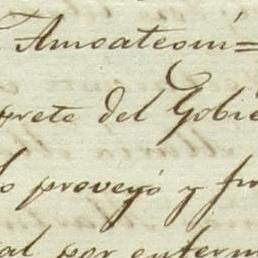 Amoateoin=
prete del Gobie
lo proveyó y fir
al por enferm